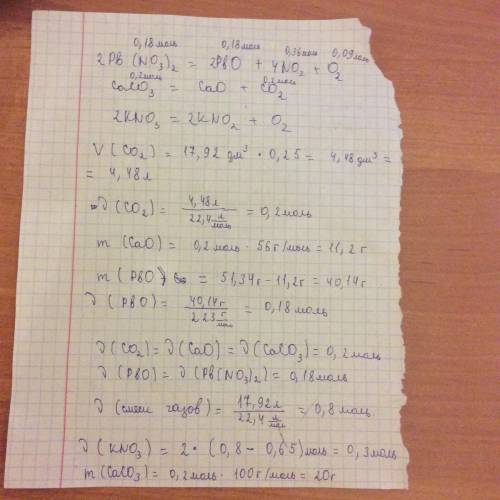 0,18моль 0,18моль 0,36моль 0,09моль
2Pb(NO₃)₂ = 2PbO + 4NO₂ + O₂
0,2моль 0,2моль
CaCO₃ = CaO + CO₂
2KNO₃ = 2KNO₂ + O₂
V(CO₂) = 17,92 дм³ · 0,25 = 4,48 дм³ =
= 4,48л
ν(CO₂) = 4,48л / 22,4 л/моль = 0,2моль
m(CaO) = 0,2моль · 56г/моль = 11,2г
m(PbO) = 51,34г - 11,2г = 40,14г
ν(PbO) = 40,14г / 223 г/моль = 0,18моль
ν(CO₂) = ν(CaO) = ν(CaCO₃) = 0,2моль
ν(PbO) = ν(Pb(NO₃)₂) = 0,18моль
ν(смеси газов) = 17,92л / 22,4 л/моль = 0,8моль
ν(KNO₃) = 2 · (0,8 - 0,65)моль = 0,3моль
m(CaCO₃) = 0,2моль · 100г/моль = 20г